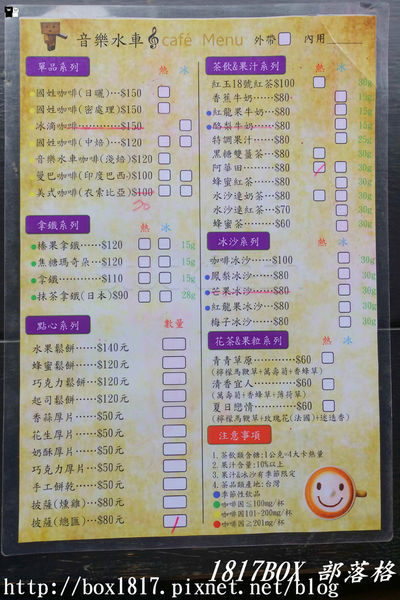 音樂水車 café Menu 外帶 內用
單品系列 熱 冰
國姓咖啡(日曬)...$150
國姓咖啡(密處理)$150
冰滴咖啡 $150
國姓咖啡(中焙)...$120
音樂水車咖啡(淺焙)$120
曼巴咖啡(印度巴西)$100
美式咖啡(衣索比亞)$100
拿鐵系列 熱 冰
榛果拿鐵......$120 15g
焦糖瑪奇朵...$120 15g
拿鐵............$110 15g
抹茶拿鐵(日本)$90 28g
點心系列 數量
水果鬆餅......$140元
蜂蜜鬆餅......$120元
巧克力鬆餅...$120元
起司鬆餅......$120元
香蒜厚片......$50元
花生厚片......$50元
奶酥厚片......$50元
巧克力厚片...$50元
手工餅乾......$50元
披薩(燻雞)...$80元
披薩(總匯)...$80元
茶飲&果汁系列 熱 冰
紅玉18號紅茶$100 30g
香蕉牛奶......$80 30g
紅龍果牛奶...$80 30g
酪梨牛奶......$80 30g
特調果汁......$80 25g
黑糖薑茶......$80 30g
阿華田.........$80 30g
蜂蜜紅茶......$80 30g
水沙連奶茶...$80 30g
水沙連紅茶...$70 30g
蜂蜜茶.........$60 30g
冰沙系列 冰
咖啡冰沙......$80 30g
鳳梨冰沙......$80 30g
芒果冰沙......$80 30g
紅龍果冰沙...$80 30g
梅子冰沙......$80 30g
花茶&果粒系列 熱
青青草原............$60
(檸檬馬鞭草+萬壽菊+香蜂草)
清香宜人............$60
(萬壽菊+香蜂草+薄荷草)
夏日戀情............$60
(檸檬馬鞭草+玫瑰花(法國)+迷迭香)
注意事項
1. 茶飲類含糖:1公克=4大卡熱量
2. 果汁含量:10%以上
3. 果汁&冰沙有季節限定
4. 茶品類產地:台灣
季節性飲品
咖啡因≦100mg/杯
咖啡因101-200mg/杯
咖啡因≧201mg/杯
1817BOX 部落格
http://box1817.pixnet.net/blog